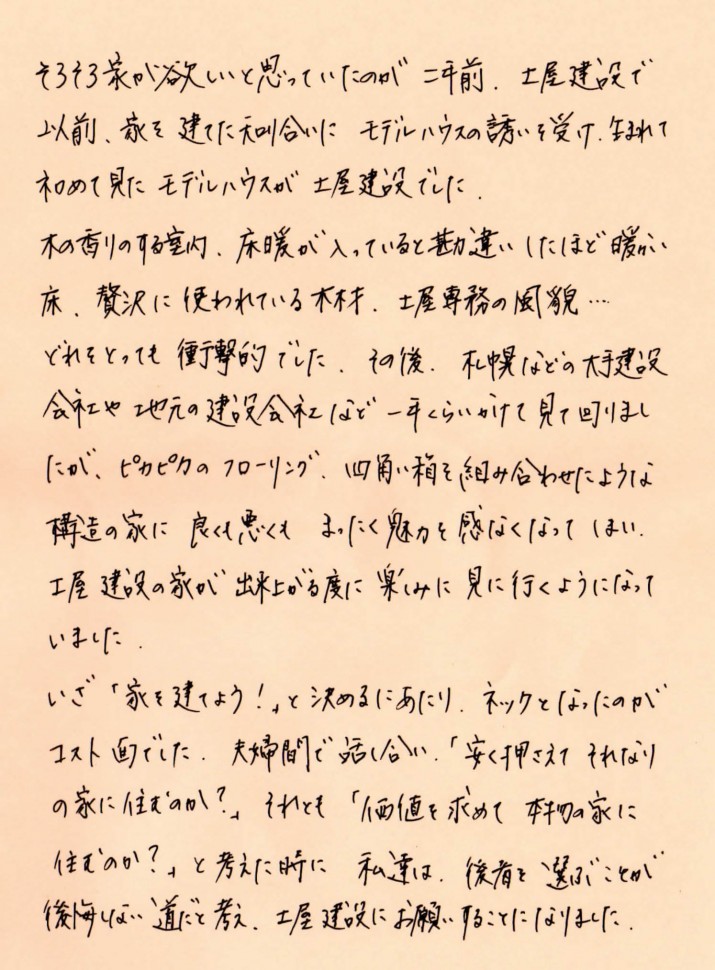 そろそろ家が欲しいと思っていたのが二年前、土屋建設で
以前、家を建てた知り合いにモデルハウスの誘いを受け、生まれて
初めて見たモデルハウスが土屋建設でした。
木の香りのする室内、床暖が入っていると勘違いしたほど暖かい
床、贅沢に使われている木材、土屋専務の風貌…
どれをとっても衝撃的でした。その後、札幌などの大手建設
会社や地元の建設会社など一年くらいかけて見て回りまし
たが、ピカピカのフローリング、四角い箱を組み合わせたような
構造の家に良くも悪くもまったく魅力を感なくなってしまい、
土屋建設の家が出来上がる度に楽しみに見に行くようになって
いました。
いざ「家を建てよう!」と決めるにあたり、ネックとなったのが
コスト面でした。夫婦間で話し合い、「安く押さえてそれなり
の家に住むのか?」それとも「価値を求めて本物の家に
住むのか?」と考えた時に私達は、後者を選ぶことが
後悔しない道だと考え、土屋建設にお願いすることになりました。